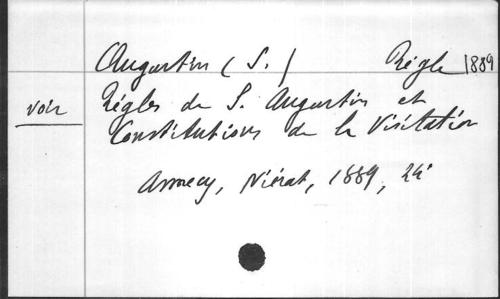 Augustin (S.) Règle 1889
voir Règles de S. Augustin et
Constitutions de la Visitation
Annecy, Niérat, 1889, 24°